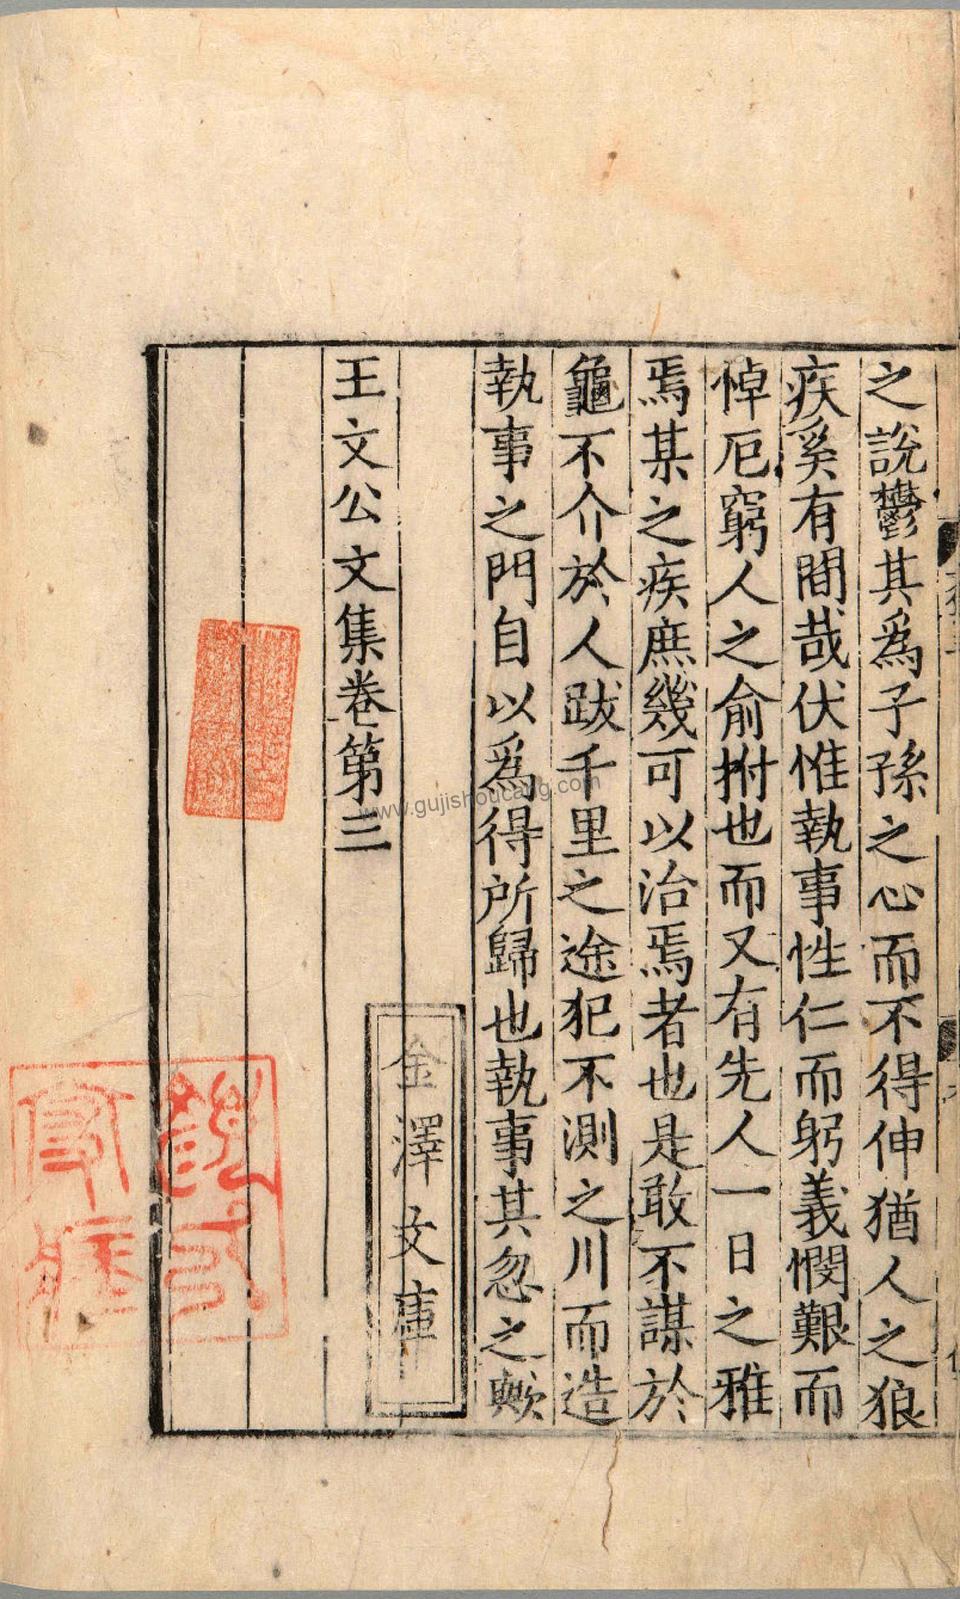 之說鬱其爲子孫之心而不得伸猶人之狼
疾奚有間哉伏惟執事性仁而躬義憫艱而
悼厄窮人之俞拊也而又有先人一日之雅
焉某之疾庶幾可以治焉者也是敢不謀於
龜不介於人跋千里之途犯不測之川而造
執事之門自以爲得所歸也執事其忽之歟
金澤文庫
王文公文集卷第三
www.gujishoucang.com